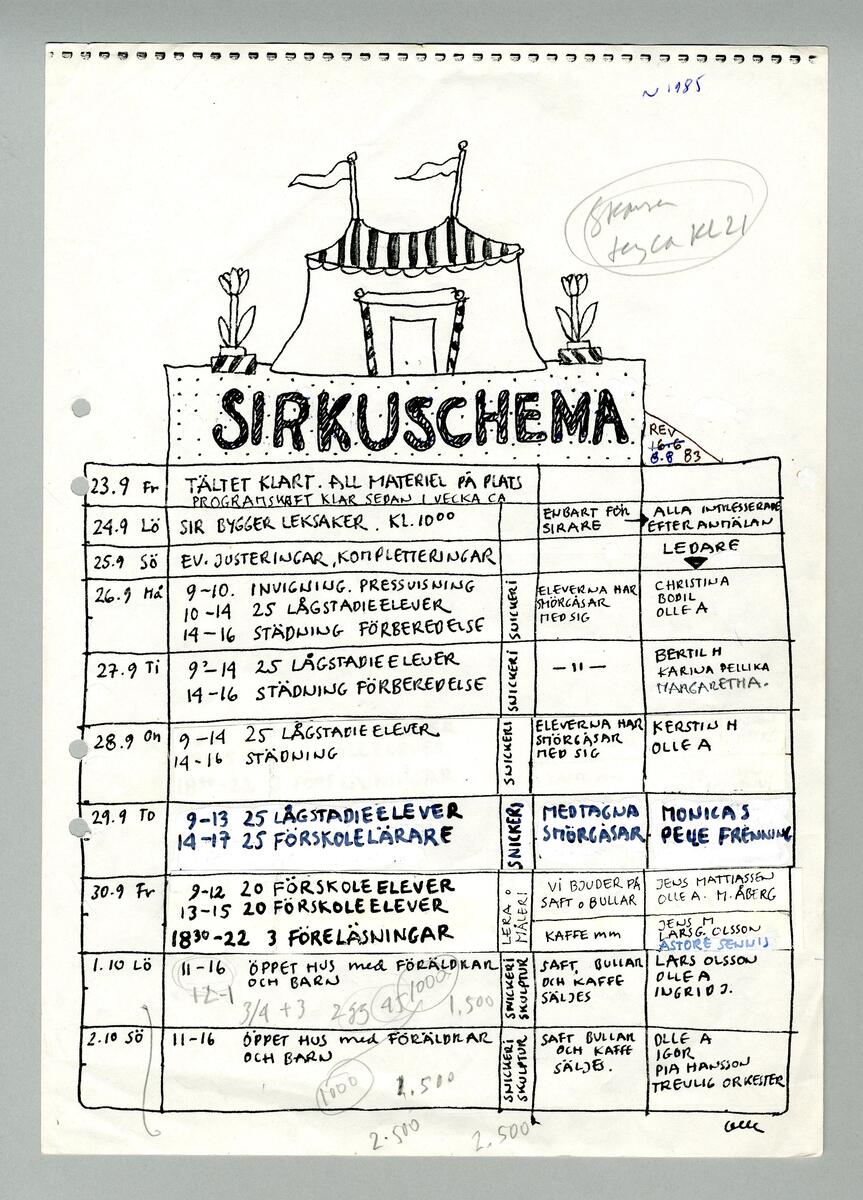 ~ 1985
KL 21
SIRKUSCHEMA
REV
16.6
8.8 83
23.9 Fr TÄLTET KLART. ALL MATERIEL PÅ PLATS
PROGRAMSKÅFT KLAR SEDAN 1 VECKA CA
24.9 LÖ SIR BYGGER LEKSAKER. KL. 10⁰⁰ ENBART FÖR ALLA INTRESSERADE
SIRARE EFTER ANMÄLAN
25.9 SÖ EV. JUSTERINGAR, KOMPLETTERINGAR LEDARE
26.9 Må 9-10. INVIGNING. PRESSVISNING SNICKERI ELEVERNA HAR CHRISTINA
10-14 25 LÅGSTADIEELEVER SMÖRGÅSAR BODIL
14-16 STÄDNING FÖRBEREDELSE MED SIG OLLE A
27.9 Ti 9²-14 25 LÅGSTADIEELEVER SNICKERI -11- BERTIL H
14-16 STÄDNING FÖRBEREDELSE KARINA PELLIKA
MARGARETHA.
28.9 On 9-14 25 LÅGSTADIEELEVER SNICKERI ELEVERNA HAR KERSTIN H
14-16 STÄDNING SMÖRGÅSAR OLLE A
MED SIG
29.9 TO 9-13 25 LÅGSTADIEELEVER SNICKERI MEDTAGNA MONICA S
14-17 25 FÖRSKOLELÄRARE SMÖRGÅSAR PELLE FRENNING
30.9 Fr 9-12 20 FÖRSKOLEELEVER LERA o MÅLERI VI BJUDER PÅ JENS MATTIASSEN
13-15 20 FÖRSKOLEELEVER SAFT o BULLAR OLLE A. M. ÅBERG
18³⁰-22 3 FÖRELÄSNINGAR KAFFE mm JENS M
LARS G. OLSSON
ASTORE SENNIS
1.10 LÖ 11-16 ÖPPET HUS med FÖRÄLDRAR SNICKERI SKULPTUR SAFT, BULLAR LARS OLSSON
OCH BARN OCH KAFFE OLLE A
SÄLJES INGRID J.
3/4 +3 2 gg 45 1000 1.500
2.10 SÖ 11-16 ÖPPET HUS med FÖRÄLDRAR SNICKERI SKULPTUR SAFT BULLAR OLLE A
OCH BARN OCH KAFFE IGOR
SÄLJES. PIA HANSSON
TREVLIG ORKESTER
1000 1.500
2.500 2.500
olle